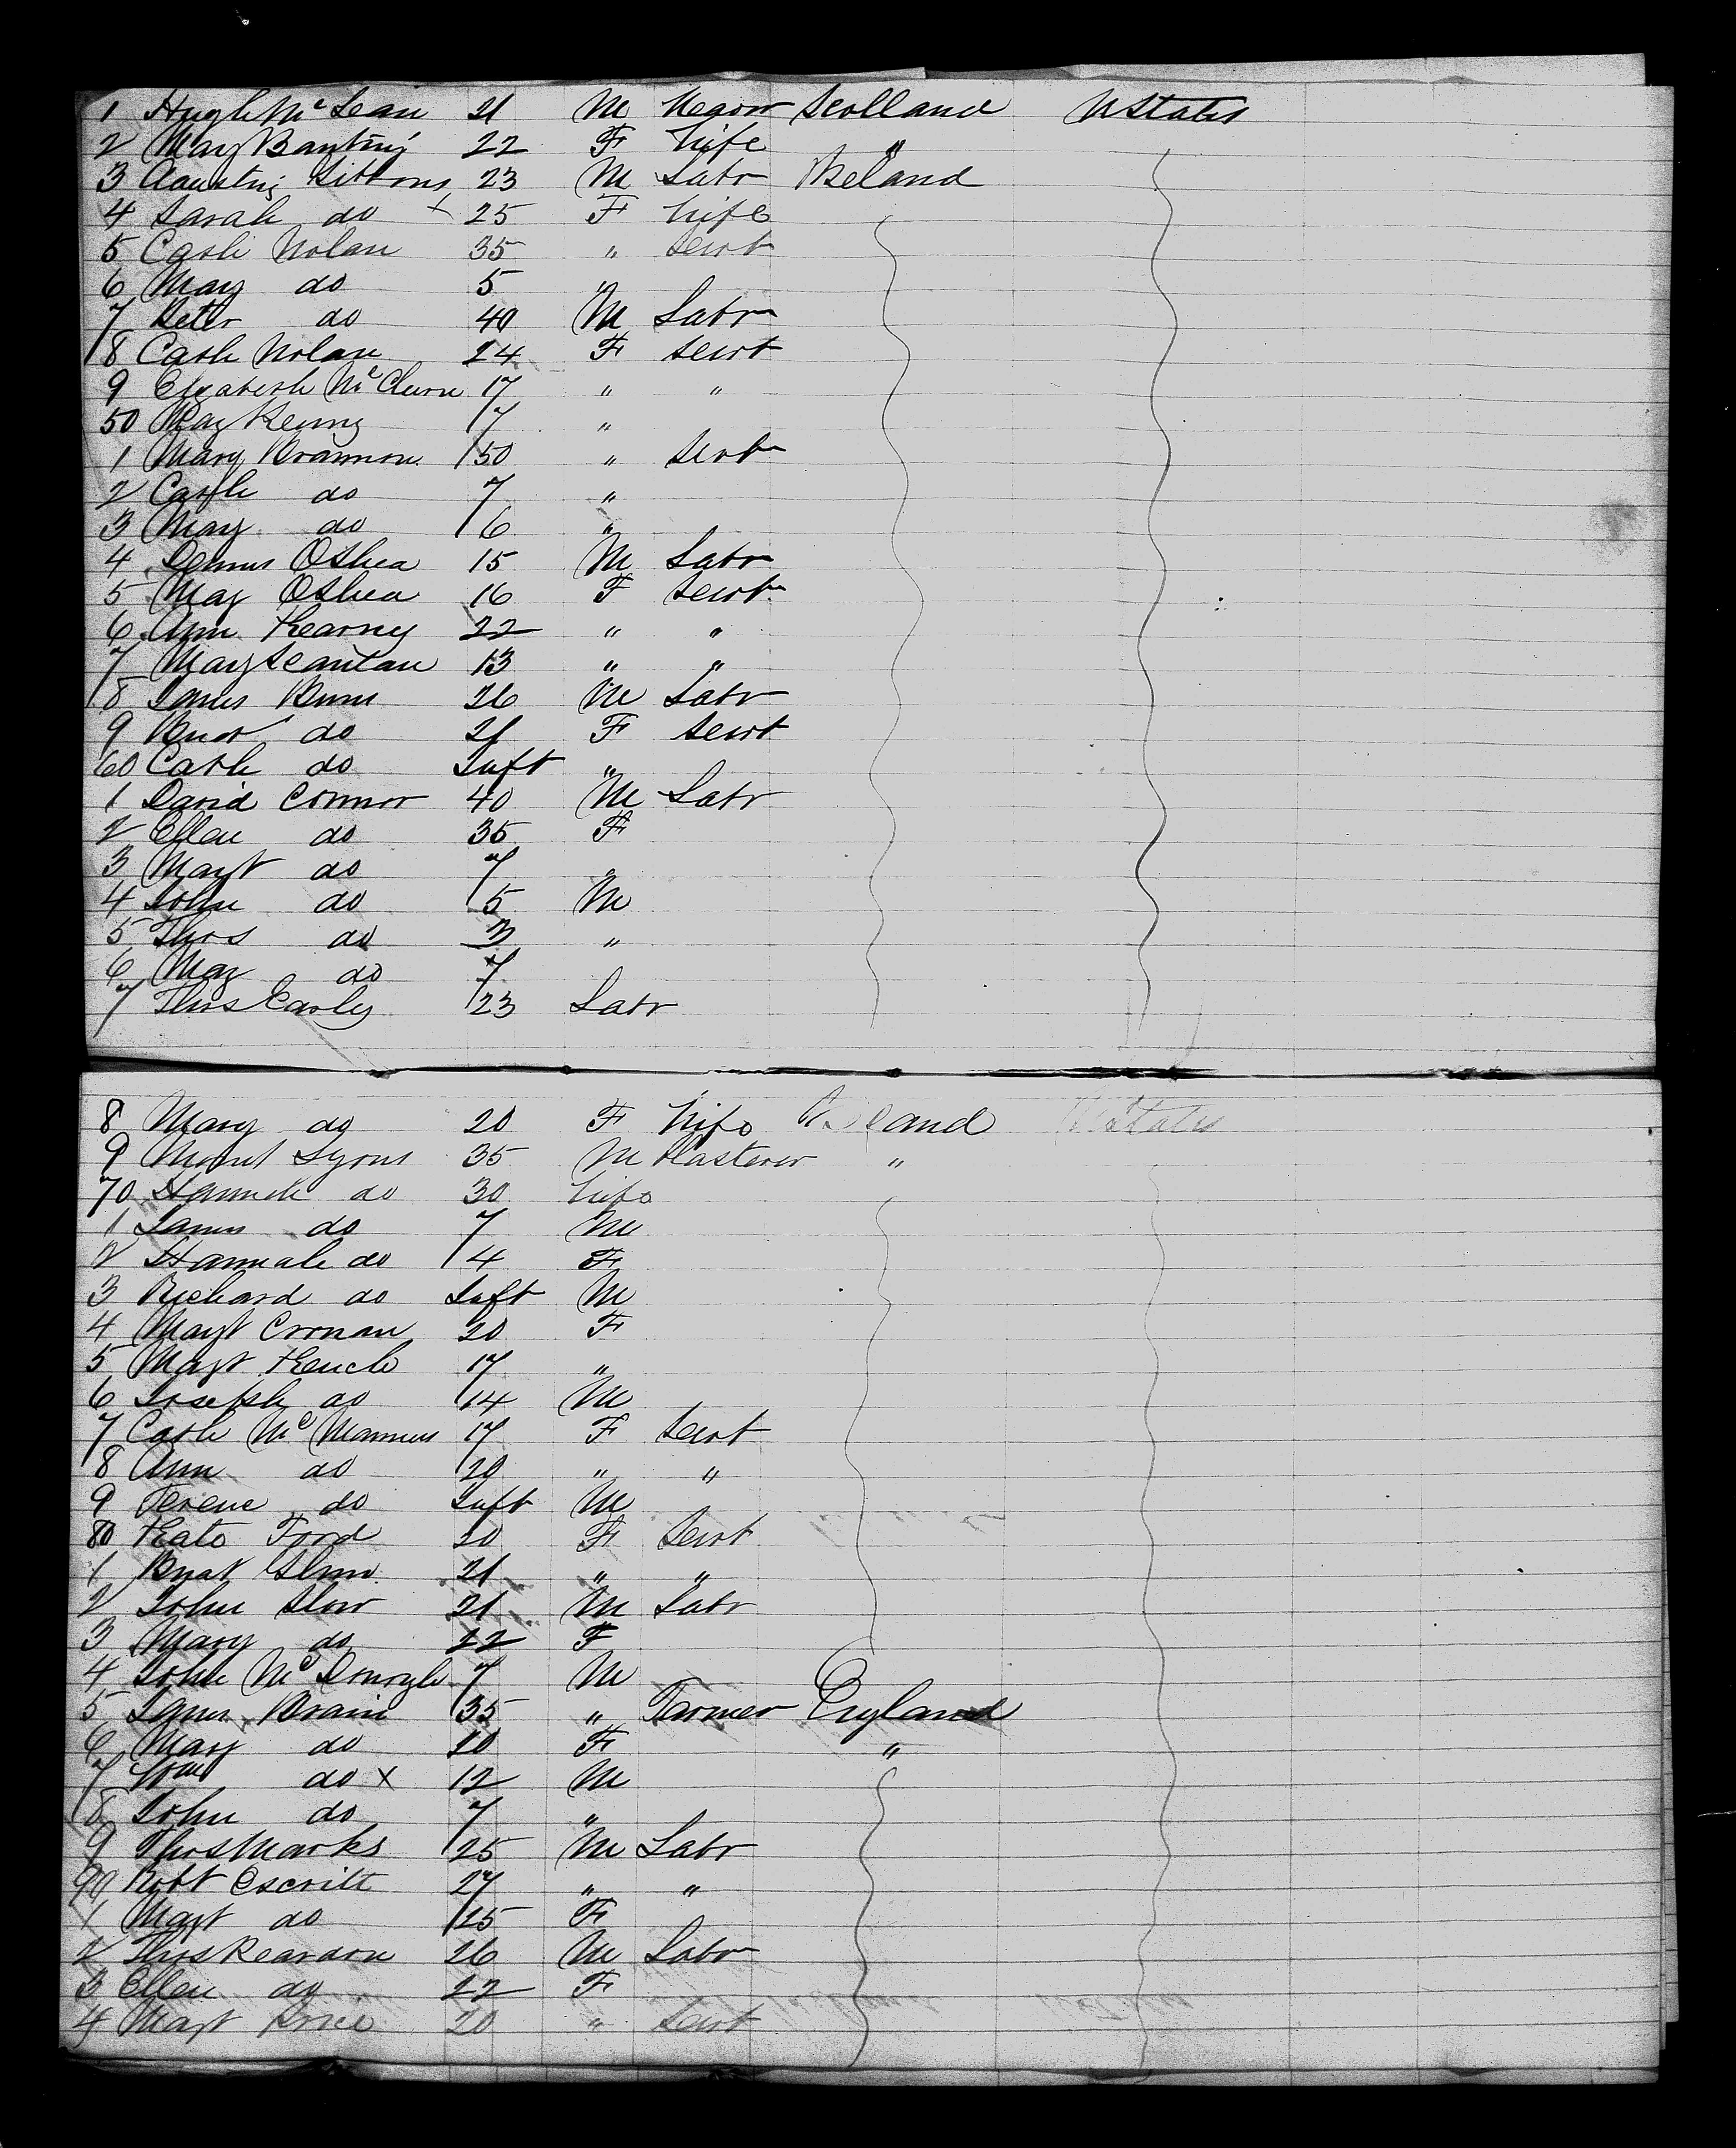 1 Hugh McLean 21 M Scotland UStates
2 Mary Banting 22 F Wife "
3 Austin Gibbons 23 M Labr Ireland
4 Sarah do x 25 F Wife
5 Cath Nolan 35 " Servt
6 Mary do 5 "
7 Peter do 40 M Labr
8 Cath Nolan 24 F Servt
9 Elizabeth McClure 17 " "
50 Mary Kenny 7 "
1 Mary Brannon 50 " Servt
2 Cath do 7 "
3 Mary do 6 "
4 Dennis OShea 15 M Labr
5 Mary OShea 16 F Servt
6 Ann Kearney 22 " "
7 Mary Scanlan 13 " "
8 James Burns 26 M Labr
9 do 21 F Servt
60 Cath do Inft "
1 David Connor 40 M Labr
2 Ellen do 35 F
3 Margt do 7 "
4 John do 5 M
5 Thos do 3 "
6 Mary do
7 Thos Carley 23 Labr
8 Mary do 20 F Wife Ireland UStates
9 Lyons 35 M Plasterer "
70 Hannah do 30 Wife
1 James do 7 M
2 Hannah do 4 F
3 Richard do Inft M
4 Margt Cronan 20 F
5 Margt 17 "
6 Joseph do 14 M
7 Cath McMannus 17 F Servt
8 Ann do 20 " "
9 Terence do Inft M
80 Kate Ford 20 F Servt
1 21 " "
2 John 21 M Labr
3 Mary do 22 F
4 John 7 M
5 James 35 " Farmer England
6 Mary do F "
7 Wm do x 12 M
8 John do 7 "
9 Thos Marks 25 M Labr
90 Robt Escritt 27 " "
1 Margt do 25 F
2 Thos Reardon 26 M Labr
3 Ellen do 22 F
4 Margt Price 20 " Servt